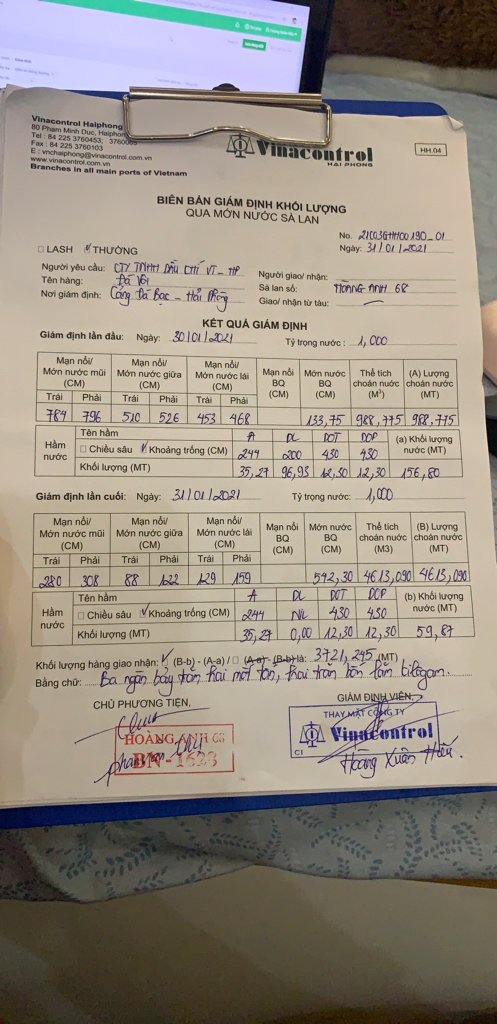 Vinacontrol Haiphong
80 Pham Minh Duc, Haiphong
Tel : 84 225 3760453; 3760065
Fax : 84 225 3760103
E : vnchaiphong@vinacontrol.com.vn
www.vinacontrol.com.vn
Branches in all main ports of Vietnam
Vinacontrol
HẢI PHÒNG
HH.04
BIÊN BẢN GIÁM ĐỊNH KHỐI LƯỢNG
QUA MỚN NƯỚC SÀ LAN
No. 21G03GHH00190_01
□ LASH ☑ THƯỜNG Ngày: 31/01/2021
Người yêu cầu: CTY TNHH DẦU CHÍ VI - HP Người giao/ nhận:
Tên hàng: Đá Vôi Sà lan số: HOÀNG ANH 68
Nơi giám định: Cảng Đá Bạc - Hải Phòng Giao/ nhận từ tàu:
KẾT QUẢ GIÁM ĐỊNH
Giám định lần đầu: Ngày: 30/01/2021 Tỷ trọng nước : 1,000
Mạn nổi/ Mớn nước mũi (CM) Mạn nổi/ Mớn nước giữa (CM) Mạn nổi/ Mớn nước lái (CM) Mạn nổi BQ (CM) Mớn nước BQ (CM) Thể tích choán nước (M³) (A) Lượng choán nước (MT)
Trái Phải Trái Phải Trái Phải
784 796 510 526 453 468 133,75 988,775 988,775
Hầm nước Tên hầm A DL DOT DOP (a) Khối lượng nước (MT)
□ Chiều sâu ☑ Khoảng trống (CM) 244 200 430 430
Khối lượng (MT) 35,27 96,93 12,30 12,30 156,80
Giám định lần cuối: Ngày: 31/01/2021 Tỷ trọng nước: 1,000
Mạn nổi/ Mớn nước mũi (CM) Mạn nổi/ Mớn nước giữa (CM) Mạn nổi/ Mớn nước lái (CM) Mạn nổi BQ (CM) Mớn nước BQ (CM) Thể tích choán nước (M3) (B) Lượng choán nước (MT)
Trái Phải Trái Phải Trái Phải
280 308 88 122 129 159 542,30 4613,090 4613,090
Hầm nước Tên hầm A DL DOT DOP (b) Khối lượng nước (MT)
□ Chiều sâu ☑ Khoảng trống (CM) 244 NIL 430 430
Khối lượng (MT) 35,27 0,00 12,30 12,30 59,87
Khối lượng hàng giao nhận: ☑ (B-b) - (A-a) / □ (A-a) - (B-b) là: 3721,245 (MT)
Bằng chữ: Ba ngàn bảy trăm hai mốt tấn, hai trăm bốn lăm kilôgam.
CHỦ PHƯƠNG TIỆN, GIÁM ĐỊNH VIÊN,
THAY MẶT CÔNG TY
HOÀNG ANH 68
Vinacontrol
BN - 1628
C1
Hoàng Xuân Hiếu.